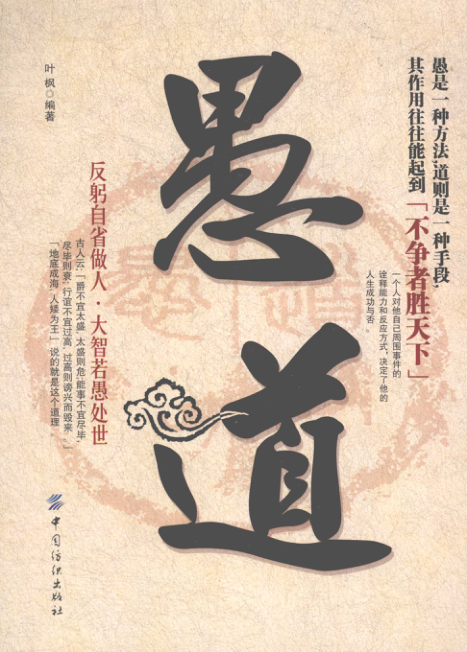 愚道
愚是一种方法,道则是一种手段,
其作用往往能起到「不争者胜天下」
一个人对他自己周围事件的
诠释能力和反应方式,决定了他的
人生成功与否。
反躬自省做人·大智若愚处世
古人云:「爵不宜太盛,太盛则危;能事不宜尽毕,
尽毕则衰;行谊不宜过高,过高则谤兴而毁来。」
「地底成海,人矮为王」,说的就是这个道理。
叶枫◎编著
中国纺织出版社